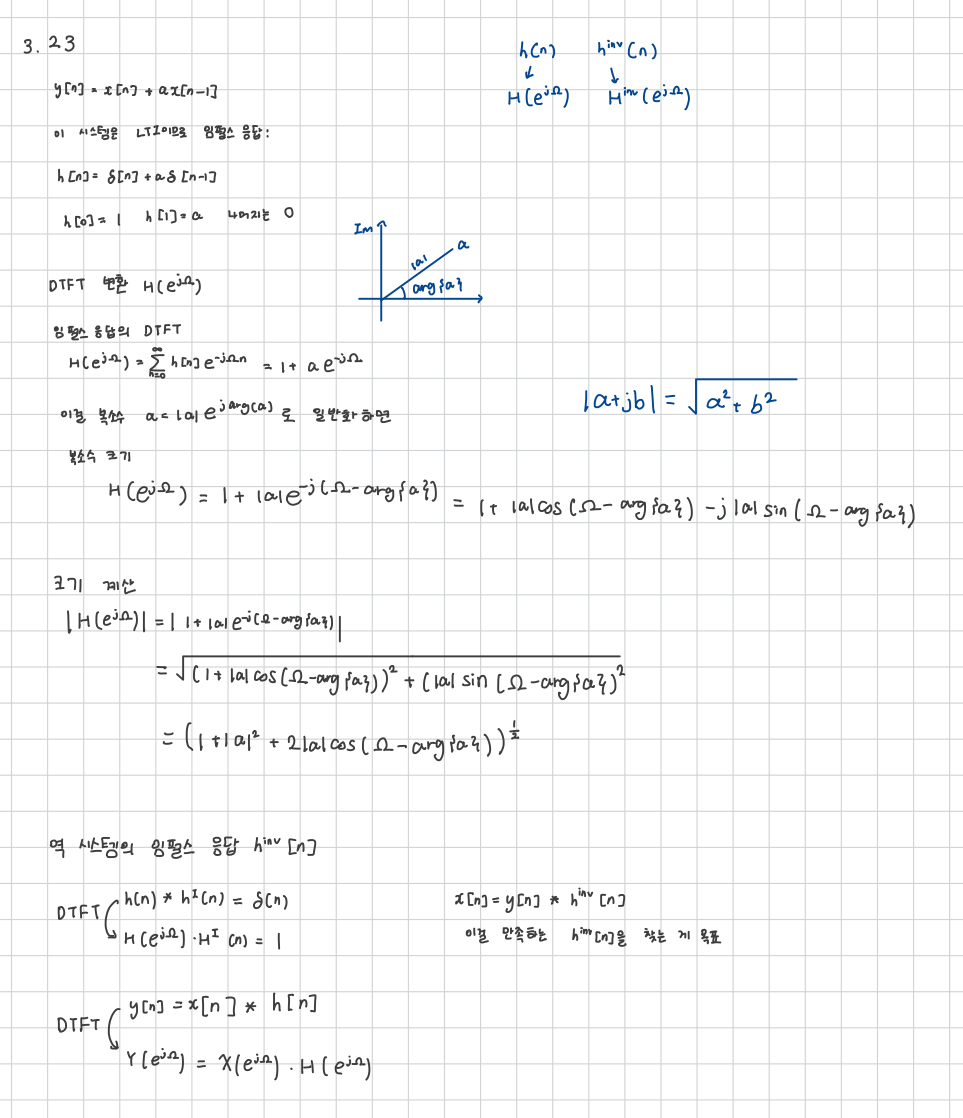 3.23
h(n) h^{inv}(n)
↓ ↓
H(e^{jΩ}) H^{inv}(e^{jΩ})
y[n] = x[n] + ax[n-1]
이 시스템은 LTI이므로 임펄스 응답:
h[n] = δ[n] + aδ[n-1]
h[0] = 1 h[1] = a 나머지는 0
Im
a
|a|
arg{a}
DTFT 변환 H(e^{jΩ})
임펄스 응답의 DTFT
H(e^{jΩ}) = \sum_{n=0}^{∞} h[n]e^{-jΩn} = 1 + ae^{-jΩ}
|a+jb| = \sqrt{a^2 + b^2}
이걸 복소수 a = |a|e^{j arg(a)} 로 일반화하면
복소수 크기
H(e^{jΩ}) = 1 + |a|e^{-j(Ω-arg{a})} = 1 + |a|cos(Ω-arg{a}) - j|a|sin(Ω-arg{a})
크기 계산
|H(e^{jΩ})| = |1 + |a|e^{-j(Ω-arg{a})}|
= \sqrt{(1+|a|cos(Ω-arg{a}))^2 + (|a|sin(Ω-arg{a})^2}
= (1+|a|^2 + 2|a|cos(Ω-arg{a}))^{\frac{1}{2}}
역 시스템의 임펄스 응답 h^{inv}[n]
DTFT
h(n) * h^I(n) = δ(n)
H(e^{jΩ})·H^I(n) = 1
x[n] = y[n] * h^{inv}[n]
이걸 만족하는 h^{inv}[n]을 찾는 게 목표
DTFT
y[n] = x[n] * h[n]
Y(e^{jΩ}) = X(e^{jΩ})·H(e^{jΩ})